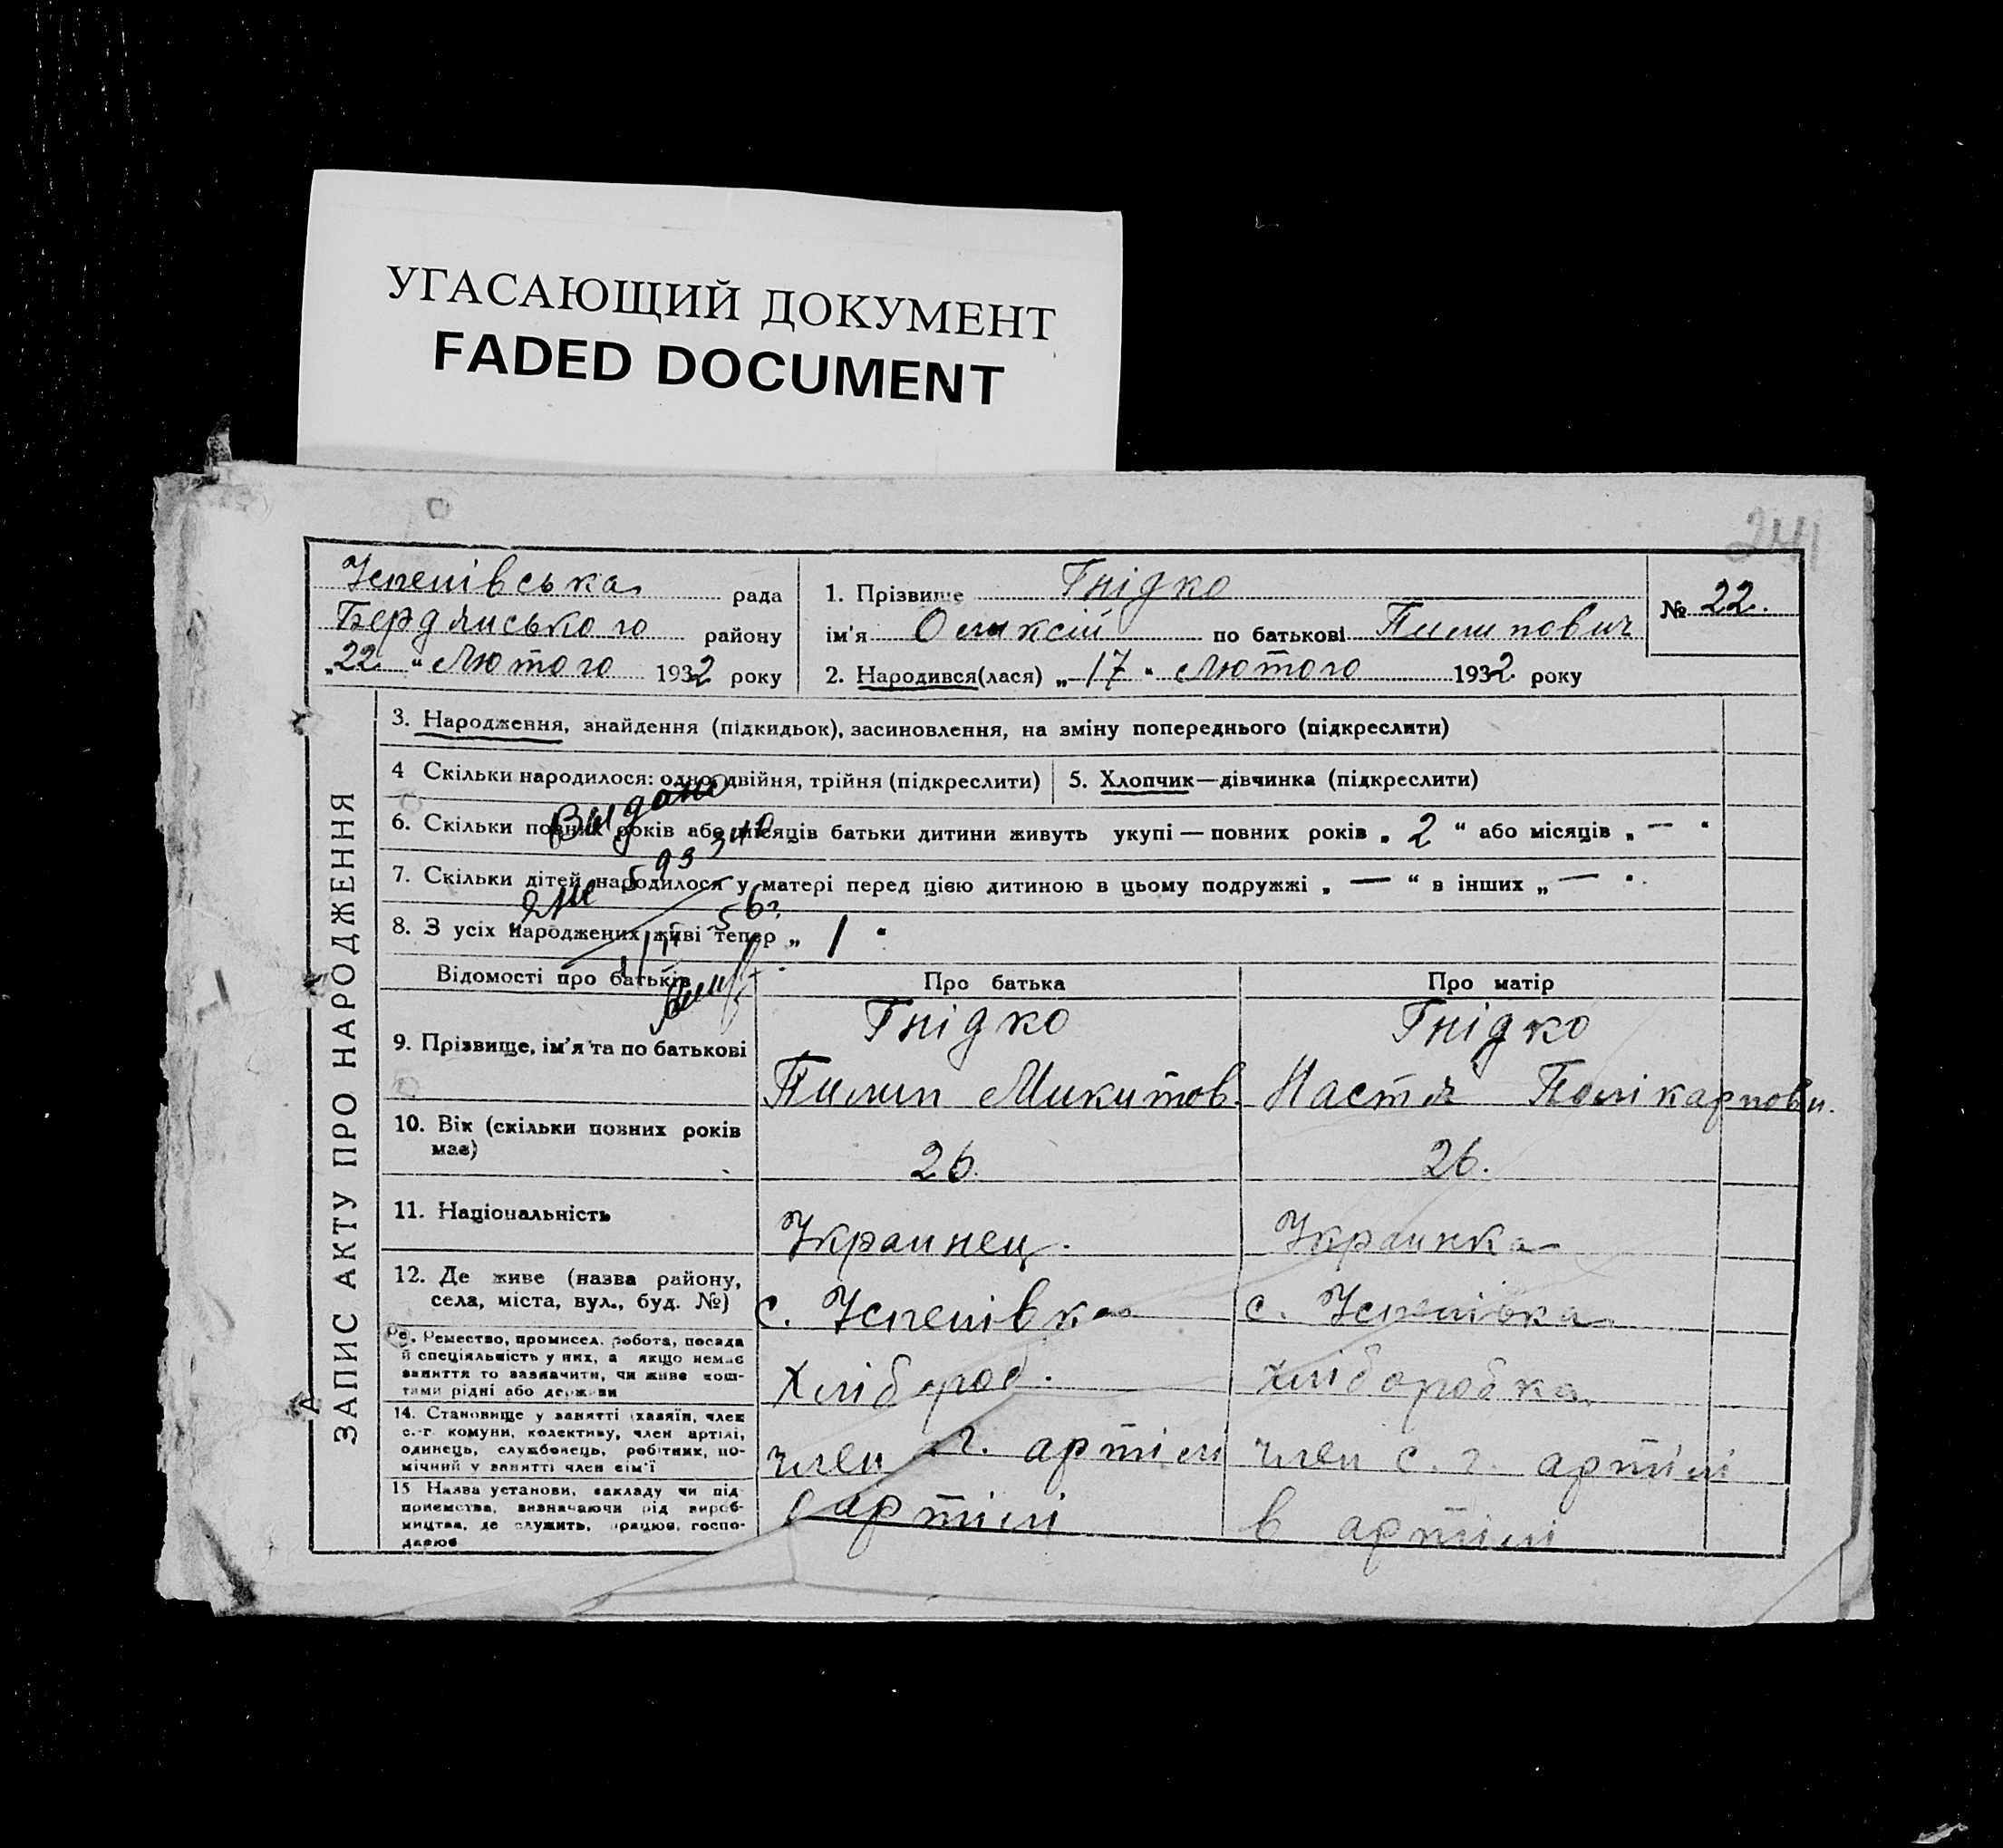 УГАСАЮЩИЙ ДОКУМЕНТ
FADED DOCUMENT
241
Успенівська рада
Бердянського району
„22 “ Лютого 1932 року
1. Прізвище Гнідко
ім'я Олексій по батькові Пилипович
2. Народився(лася) „17“ Лютого 1932 року
№ 22.
ЗАПИС АКТУ ПРО НАРОДЖЕННЯ
3. Народження, знайдення (підкидьок), засиновлення, на зміну попереднього (підкреслити)
4 Скільки народилося: одно, двійня, трійня (підкреслити)
5. Хлопчик—дівчинка (підкреслити)
6. Скільки повних років або місяців батьки дитини живуть укупі — повних років „ 2 “ або місяців „ — “
7. Скільки дітей народилося у матері перед цією дитиною в цьому подружжі „ — “ в інших „ — “
8. З усіх народжених живі тепер „ 1 “
Видано
Відомості про батьків
Про батька
Про матір
9. Прізвище, ім'я та по батькові
Гнідко
Пилип Микитов.
Гнідко
Настя Полікарповн.
10. Вік (скільки повних років
має)
26.
26.
11. Національність
Украинец.
Украинка
12. Де живе (назва району,
села, міста, вул., буд. №)
с. Успенівка
с. Успенівка
Ремество, промисел, робота, посада
й спеціяльність у них, а якщо немає
заняття то зазначити, чи живе кош-
тами рідні або держави
Хлібороб.
хліборобка.
14. Становище у занятті (хазяїн, член
с.-г. комуни, колективу, член артілі,
одинець, службовець, робітник, по-
мічний у занятті член сім'ї
член г. артіли
член с. г. артілі
15 Назва установи, закладу чи під
приємства, визначаючи рід вироб-
ництва, де служить, працює, госпо-
дарює
в артілі
в артілі